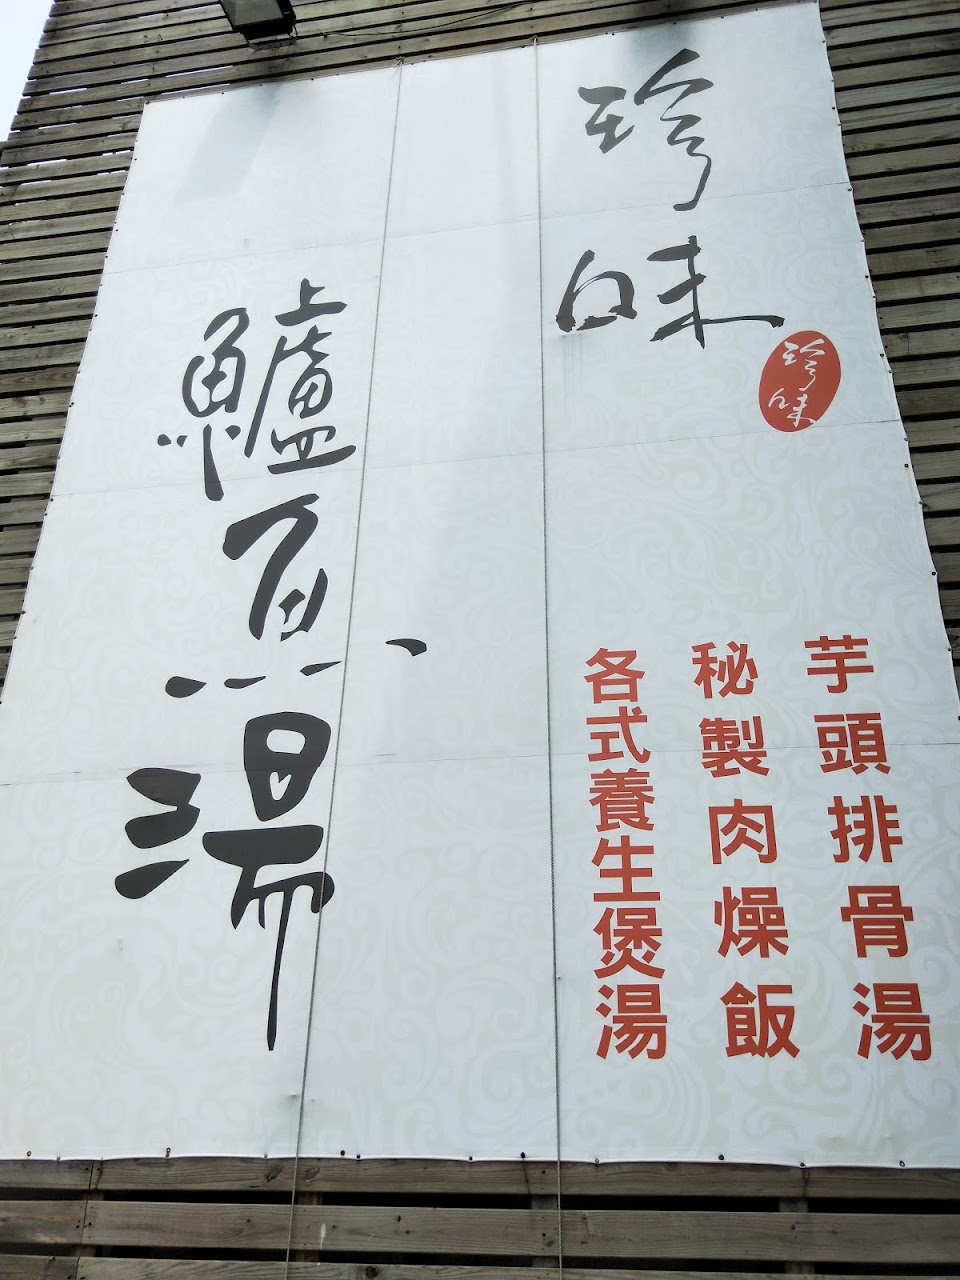 珍味
珍味
鱸魚湯
芋頭排骨湯
秘製肉燥飯
各式養生煲湯